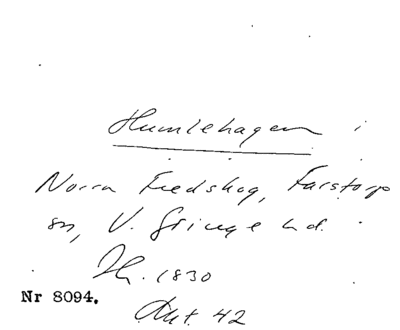 Humlehagen i
Norra Fredskog, Farstorp
sn, V. Göinge hd.
1830
Nr 8094.
Akt. 42